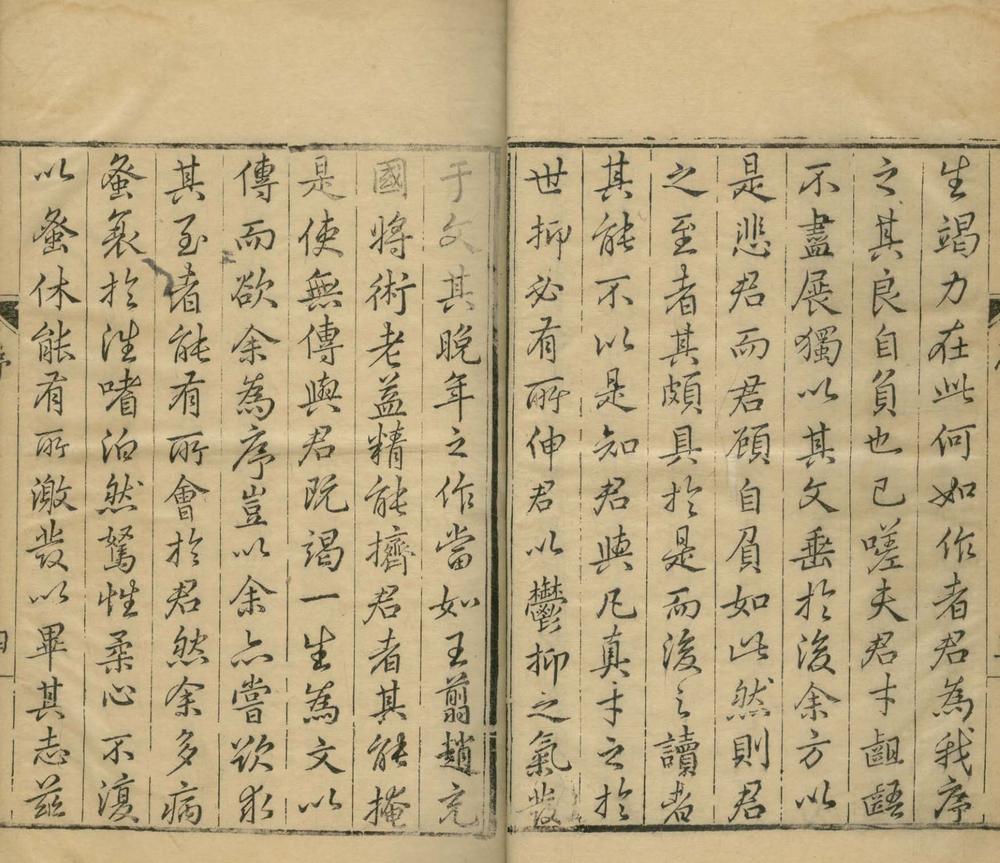 生竭力在此何如作者君為我序
之其良自負也已嗟夫君才齟齬
不盡展獨以其文垂於後余方以
是悲君而君顧自負如此然則君
之至者其頗具於是而後之讀者
其能不以是知君與凡真才之於
世抑必有所伸君以鬱抑之氣發
于文其晚年之作當如王翦趙充
國將術老益精能擠君者其能掩
是使無傳與君既竭一生為文以
傳而欲余為序豈以余亦嘗欲求
其至者能有所會於君然余多病
蚤衰於性嗜泊然駑性柔心不復
以蚤休能有所激發以畢其志茲
序
四